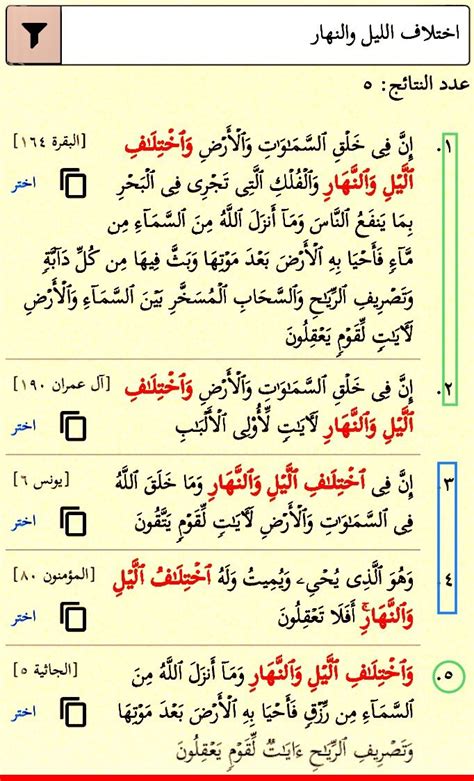 اختلاف الليل والنهار
عدد النتائج: ٥
١. إِنَّ فِى خَلْقِ ٱلسَّمَٰوَٰتِ وَٱلْأَرْضِ وَٱخْتِلَٰفِ [البقرة ١٦٤]
ٱلَّيْلِ وَٱلنَّهَارِ وَٱلْفُلْكِ ٱلَّتِى تَجْرِى فِى ٱلْبَحْرِ اختر
بِمَا يَنفَعُ ٱلنَّاسَ وَمَآ أَنزَلَ ٱللَّهُ مِنَ ٱلسَّمَآءِ مِن
مَّآءٍ فَأَحْيَا بِهِ ٱلْأَرْضَ بَعْدَ مَوْتِهَا وَبَثَّ فِيهَا مِن كُلِّ دَآبَّةٍ
وَتَصْرِيفِ ٱلرِّيَٰحِ وَٱلسَّحَابِ ٱلْمُسَخَّرِ بَيْنَ ٱلسَّمَآءِ وَٱلْأَرْضِ
لَءَايَٰتٍ لِّقَوْمٍ يَعْقِلُونَ
٢. إِنَّ فِى خَلْقِ ٱلسَّمَٰوَٰتِ وَٱلْأَرْضِ وَٱخْتِلَٰفِ [آل عمران ١٩٠]
ٱلَّيْلِ وَٱلنَّهَارِ لَءَايَٰتٍ لِّأُو۟لِى ٱلْأَلْبَٰبِ اختر
٣. إِنَّ فِى ٱخْتِلَٰفِ ٱلَّيْلِ وَٱلنَّهَارِ وَمَا خَلَقَ ٱللَّهُ [يونس ٦]
فِى ٱلسَّمَٰوَٰتِ وَٱلْأَرْضِ لَءَايَٰتٍ لِّقَوْمٍ يَتَّقُونَ اختر
٤. وَهُوَ ٱلَّذِى يُحْىِۦ وَيُمِيتُ وَلَهُ ٱخْتِلَٰفُ ٱلَّيْلِ [المؤمنون ٨٠]
وَٱلنَّهَارِ ۚ أَفَلَا تَعْقِلُونَ اختر
٥. وَٱخْتِلَٰفِ ٱلَّيْلِ وَٱلنَّهَارِ وَمَآ أَنزَلَ ٱللَّهُ مِنَ [الجاثية ٥]
ٱلسَّمَآءِ مِن رِّزْقٍ فَأَحْيَا بِهِ ٱلْأَرْضَ بَعْدَ مَوْتِهَا اختر
وَتَصْرِيفِ ٱلرِّيَٰحِ ءَايَٰتٌ لِّقَوْمٍ يَعْقِلُونَ